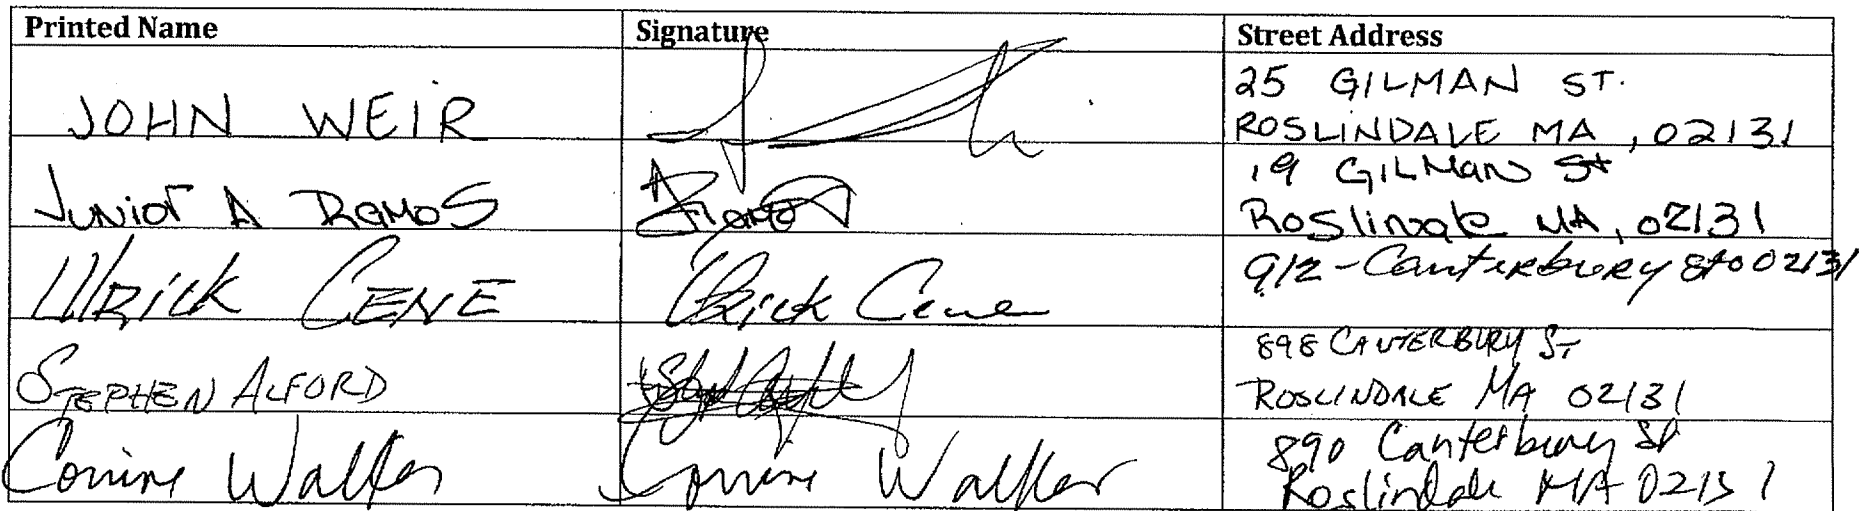 Printed Name Signature Street Address
JOHN WEIR 25 GILMAN ST.
ROSLINDALE MA, 02131
Junior A Ramos 19 GILMAN St
Roslindale MA, 02131
Ulrick CENE Ulrick Cene 912-Canterbury St 02131
STEPHEN ALFORD 898 CANTERBURY ST
ROSLINDALE MA 02131
Corrine Walker Corrine Walker 890 Canterbury St
Roslindale MA 02131